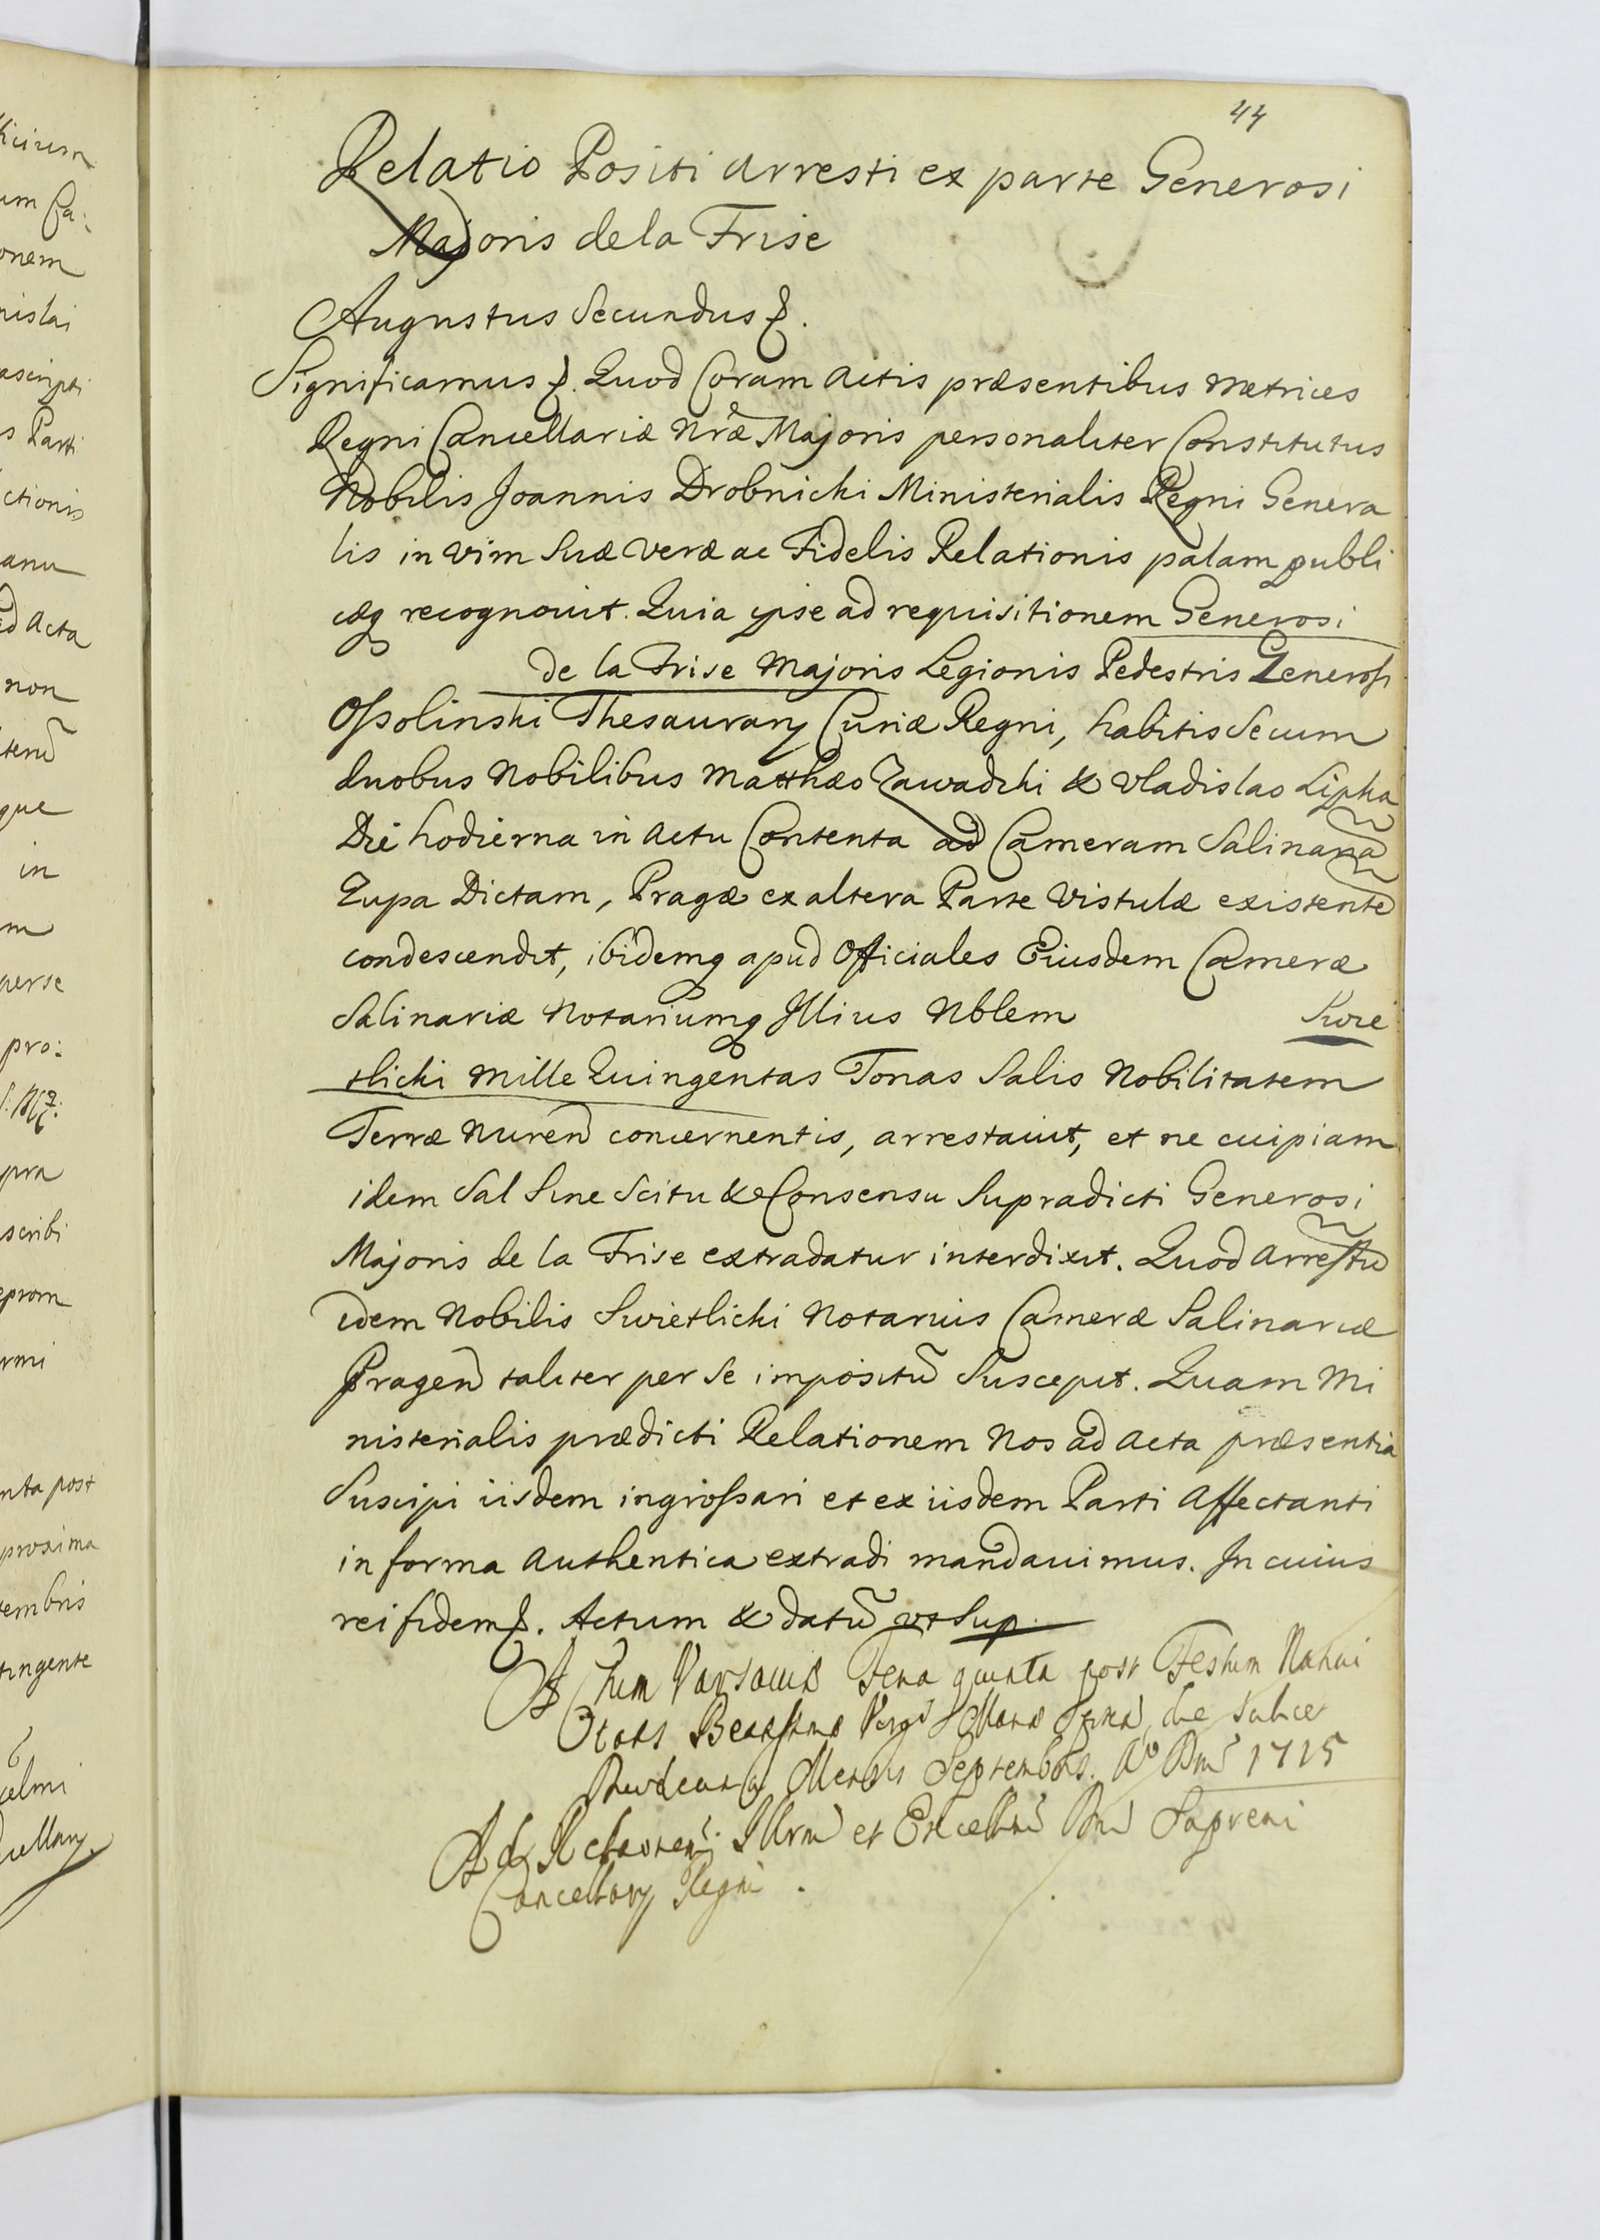 44
Relatio Positi Arresti ex parte Generosi
Majoris de la Frise
Augustus Secundus
Significamus Quod Coram Actis præsentibus Metrices
Regni Cancellariæ Nræ Majoris personaliter Constitutus
Nobilis Joannis Drobnicki Ministerialis Regni Genera
lis in vim Suæ veræ ac Fidelis Relationis palam publi
cæq recognovit. Quia ipse ad requisitionem Generosi
de la Frise Majoris Legionis Pedestris Generosi
Ossolinski Thesaurarij Curiæ Regni, habitis Secum
duobus Nobilibus Matthæo Zawadzki & Vladislao Lipka
Die hodierna in Actu Contenta ad Cameram Salinariã
Zupa Dictam, Pragæ ex altera Parte Vistulæ existentẽ
condescendit, ibidemq apud Officiales Eiusdem Cameræ
Salinariæ Notariumq Illius Nblem Swie
tlicki Mille Quingentas Tonas Salis Nobilitatem
Terræ Nuren concernentis, arrestavit, et ne cuipiam
idem Sal Sine Scitu & Consensu Supradicti Generosi
Majoris de la Frise extradatur interdixit. Quod Arrestũ
idem Nobilis Swietlicki Notarius Cameræ Salinariæ
Pragen taliter per Se impositũ Suscepit. Quam Mi
nisterialis prædicti Relationem Nos ad Acta præsentia
Suscipi iisdem ingrossari et ex iisdem Parti Affectanti
in forma Authentica extradi mandavimus. In cuius
rei fidem. Actum & datũ vt Sup.
Actum Varsaviæ Feria quinta post Festum Nativi
tatis Beatissimæ Virgs Mariæ die Salicet
Mensis Septembris. Ao Dni 1715
Ad Relationem Illrm et Excellmi Dni Supremi
Cancellarij Regni.